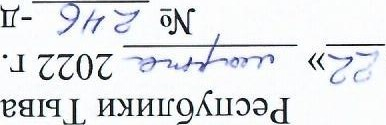 Республики Тыва
22» марта 2022 г.
№ 246 -д